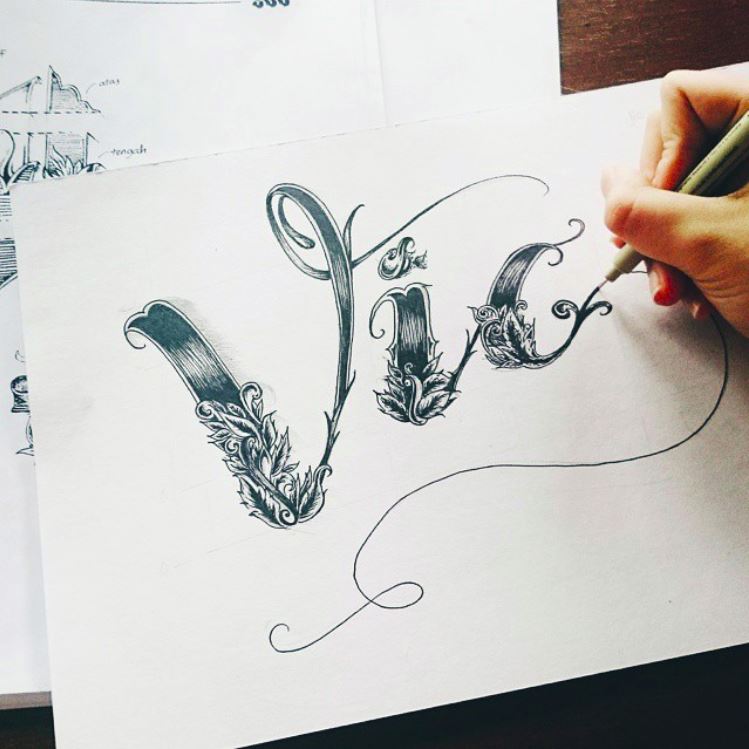 atas
tengah
Vic